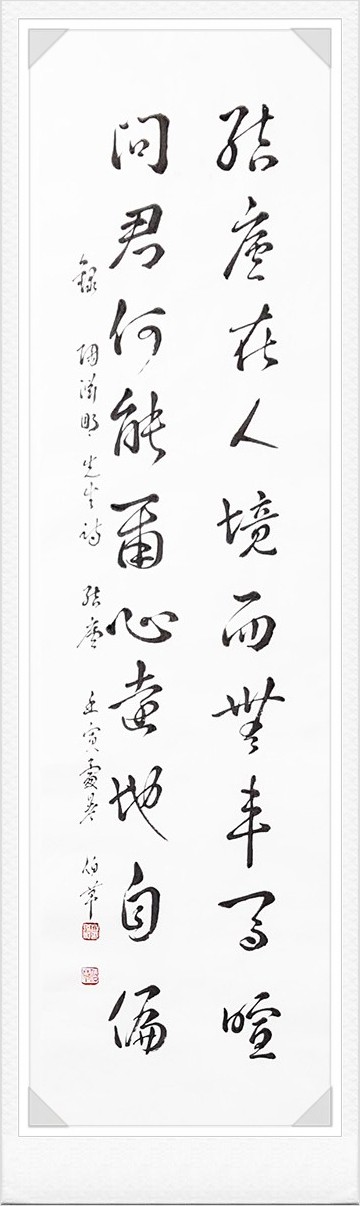 結廬在人境而無車馬喧
問君何能爾心遠地自偏
錄 陶淵明先生詩 結廬 壬寅處暑 伯華